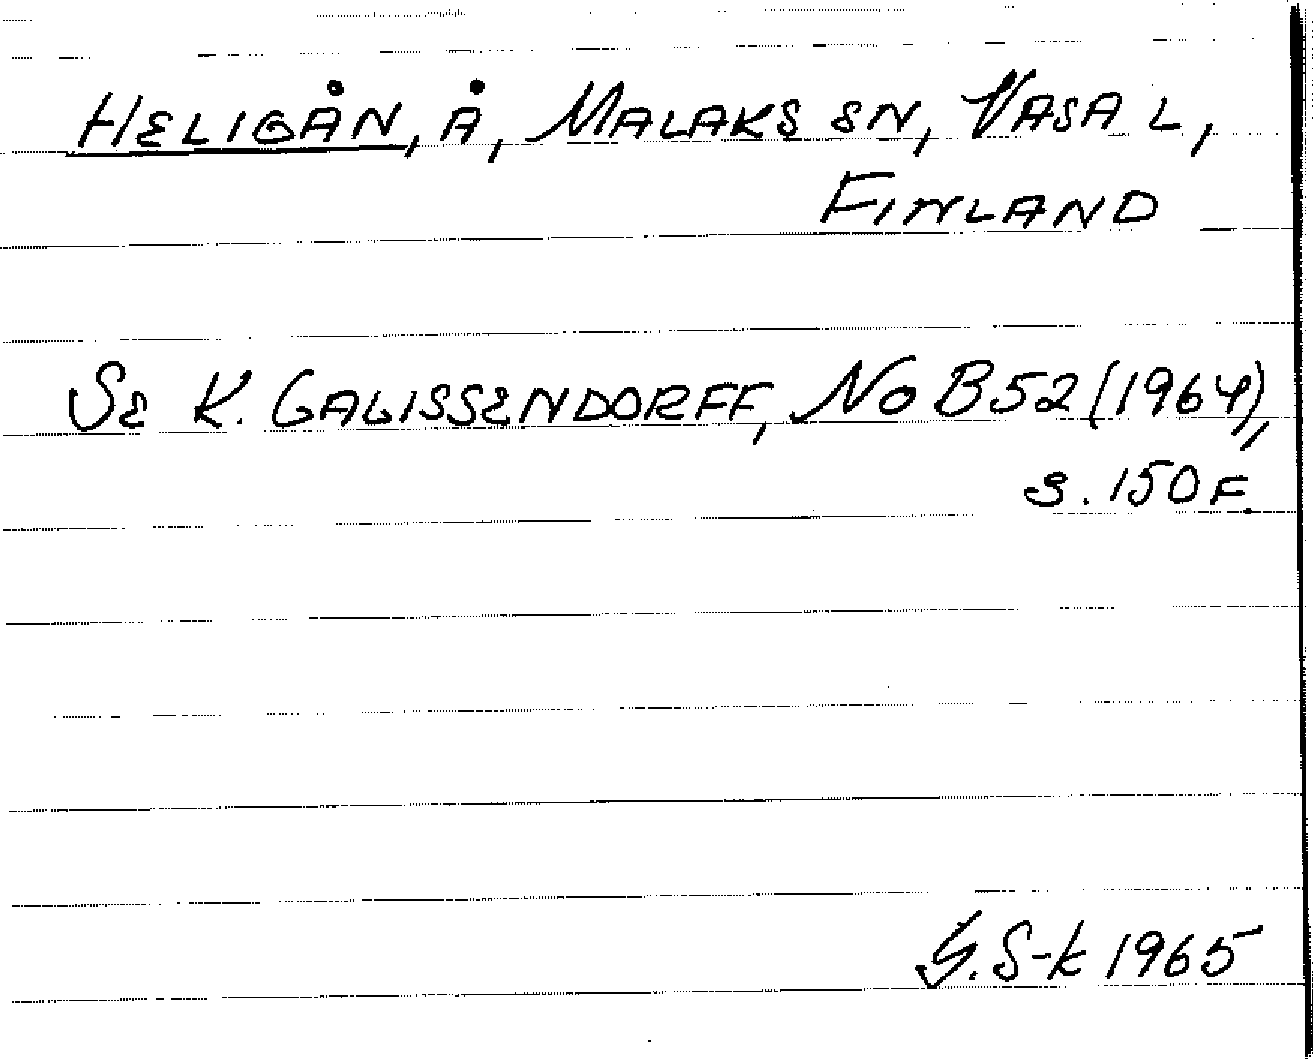 HELIGÅN, Å, MALAKS SN, VASA L,
FINLAND
SE K. GALISSENDORFF, NO B52 (1964),
S. 150 F.
G.S-k 1965